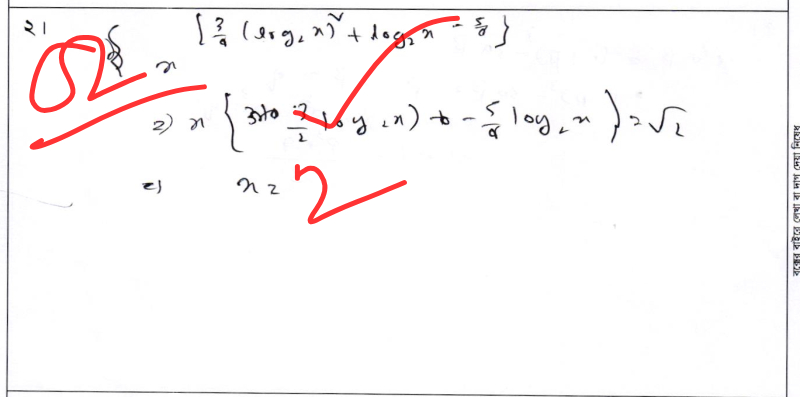 ২১
x^{[3/4 (log₂x)² + log₂x - 5/4]}
02
⇒ x { 3/2 log₂x) + - 5/4 log₂x } = √2
⇒ x = 2
বক্সের বাইরে লেখা বা দাগ দেয়া নিষেধ